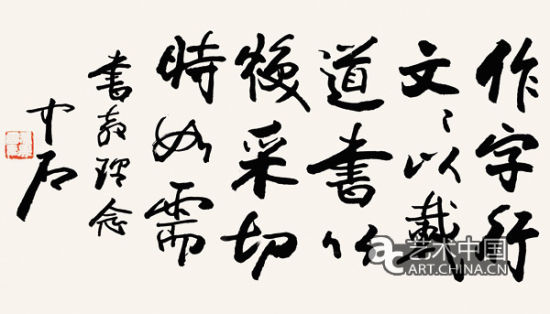 作字行
文〻以載
道書以
煥采切
時如需
書教理念
中石
艺术中国
ART.CHINA.CN